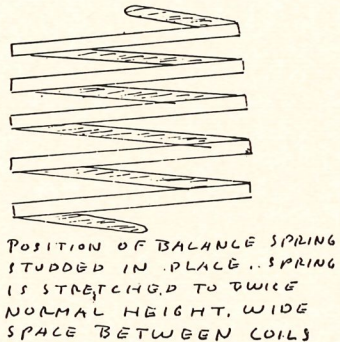 POSITION OF BALANCE SPRING
STUDDED IN PLACE.. SPRING
IS STRETCHED TO TWICE
NORMAL HEIGHT, WIDE
SPACE BETWEEN COILS